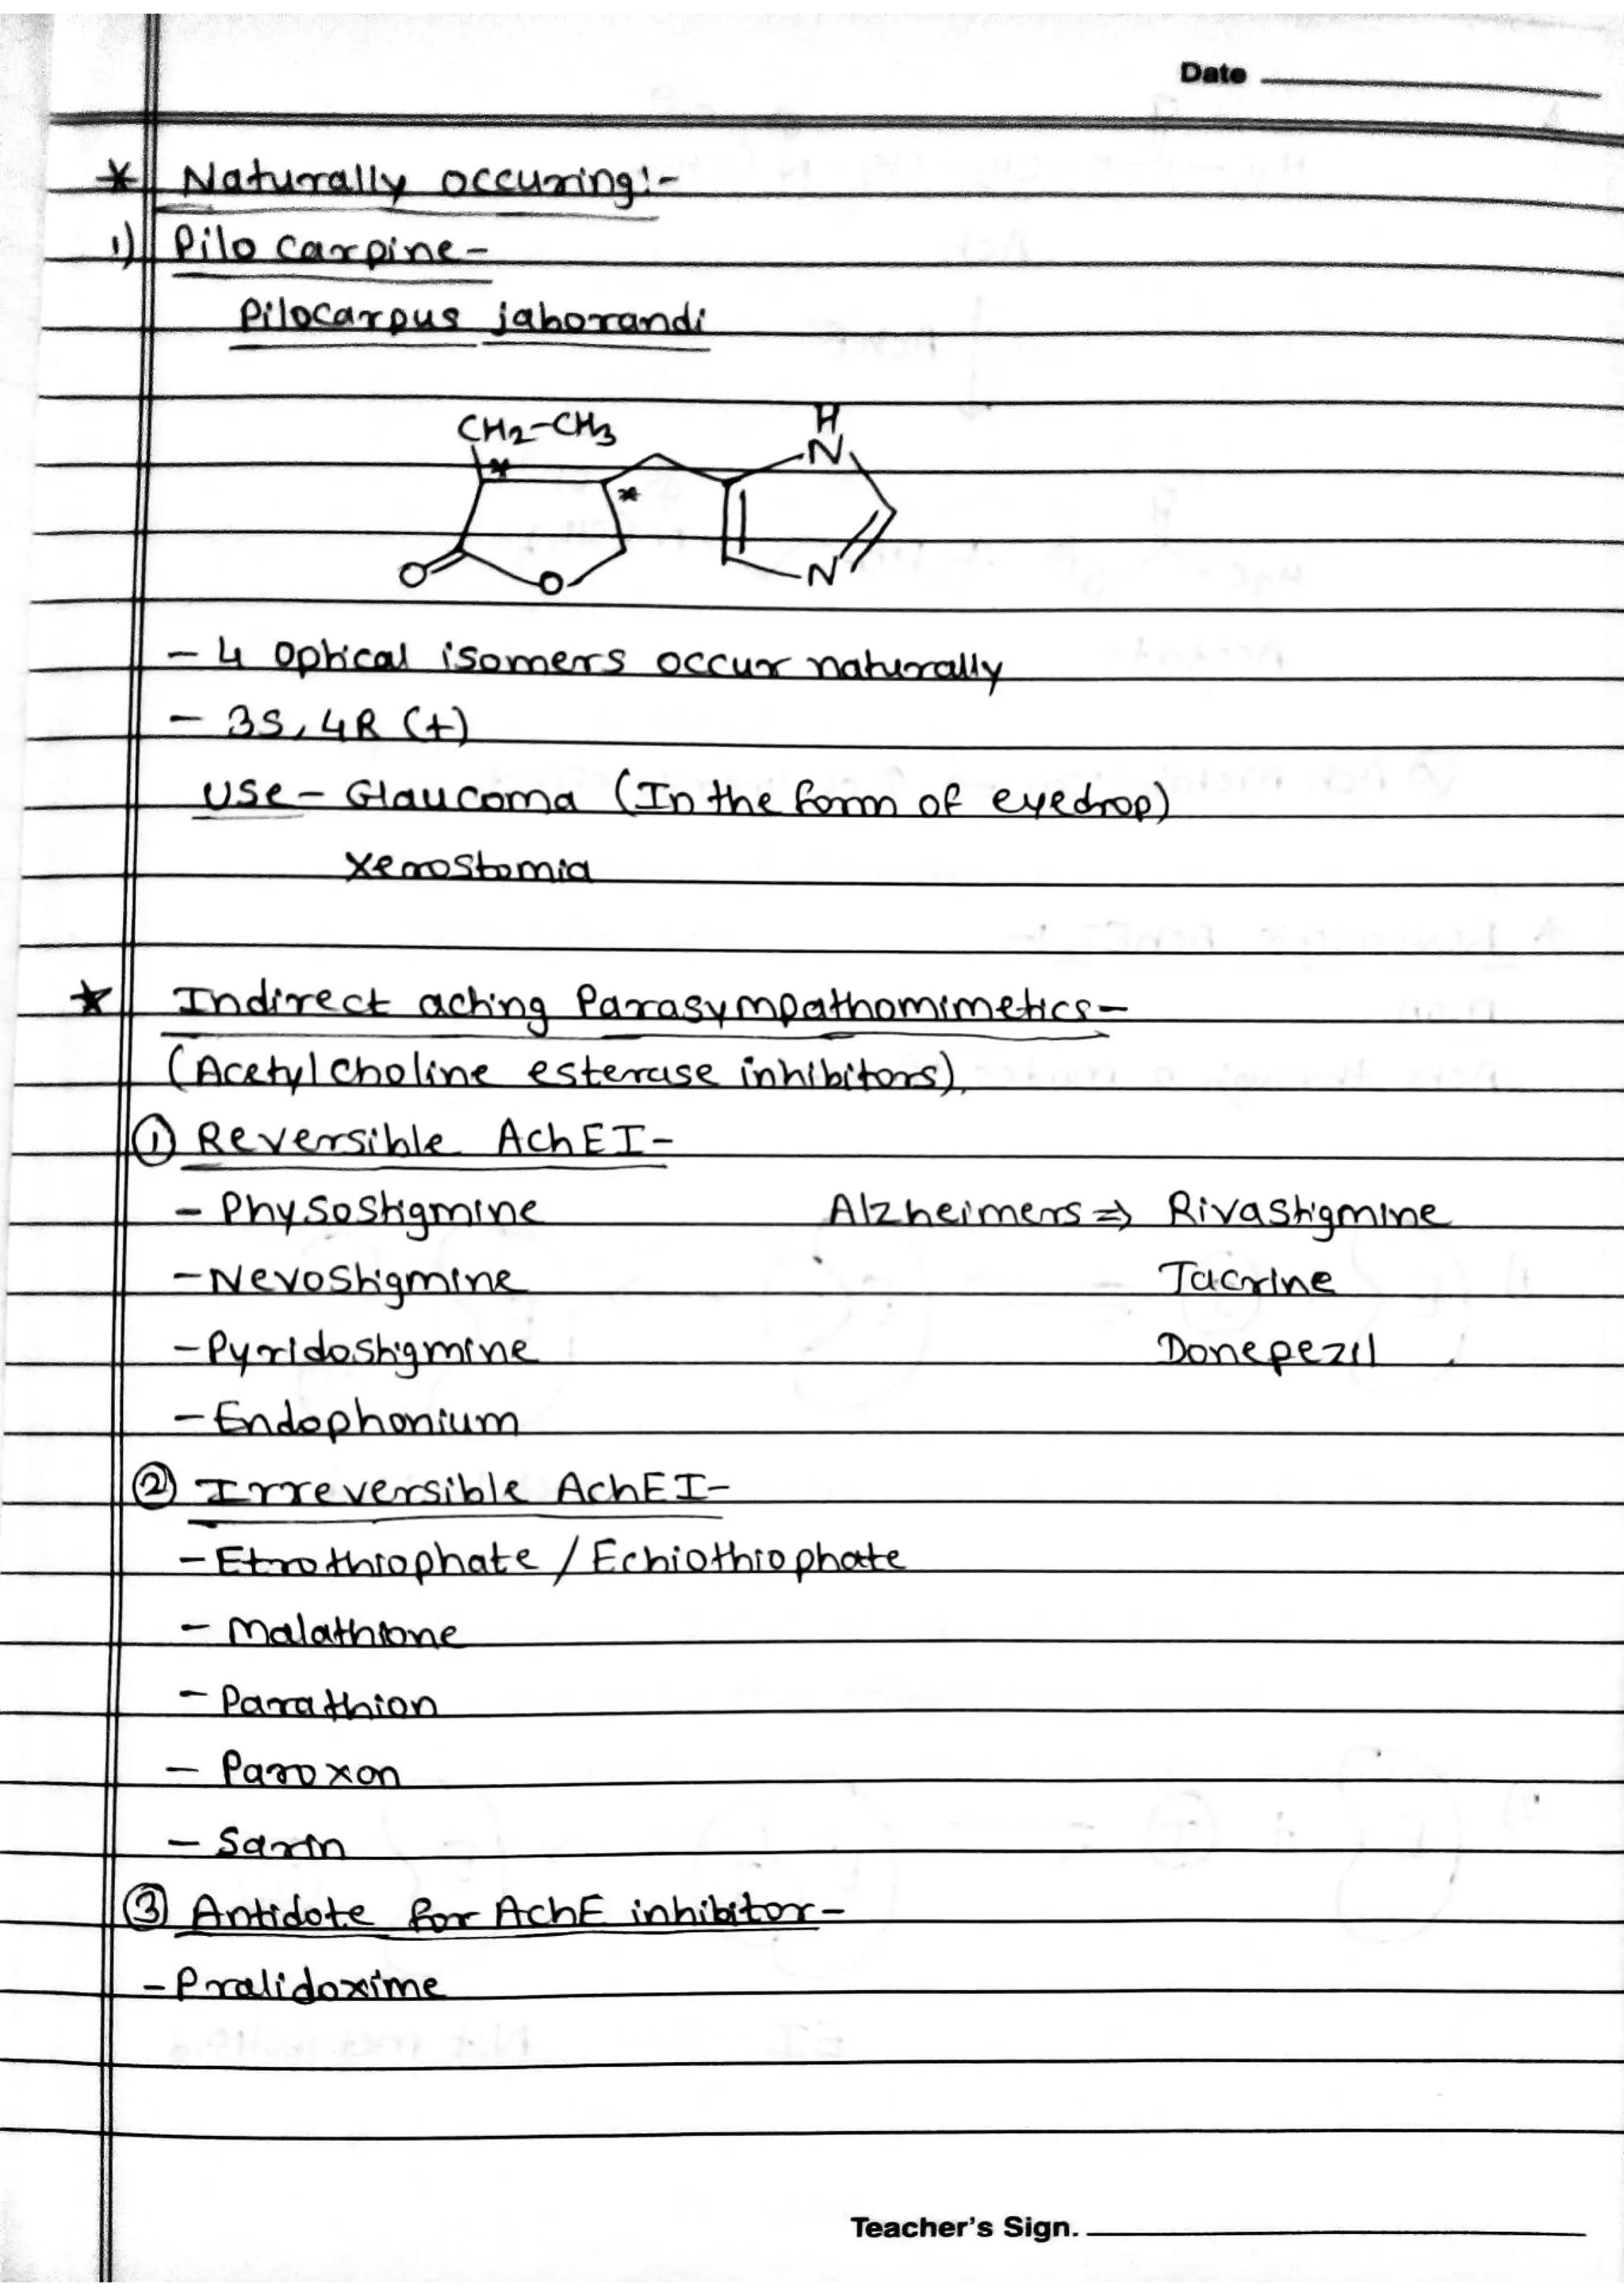 Date
* Naturally occuring:-
1) Pilo carpine-
Pilocarpus jaborandi
CH2-CH3
H
N
*
*
O
O
N
- 4 optical isomers occur naturally
- 3S, 4R (+)
Use - Glaucoma (In the form of eyedrop)
Xerostomia
* Indirect acting Parasympathomimetics-
(Acetylcholine esterase inhibitors).
① Reversible AchEI-
- Physostigmine Alzheimers ⇒ Rivastigmine
- Nevostigmine Tacrine
- Pyridostigmine Donepezil
- Endophonium
② Irreversible AchEI-
- Etrothiophate / Echiothiophate
- Malathione
- Parathion
- Paroxon
- Sarin
③ Antidote for AchE inhibitor-
- Pralidoxime
Teacher's Sign.